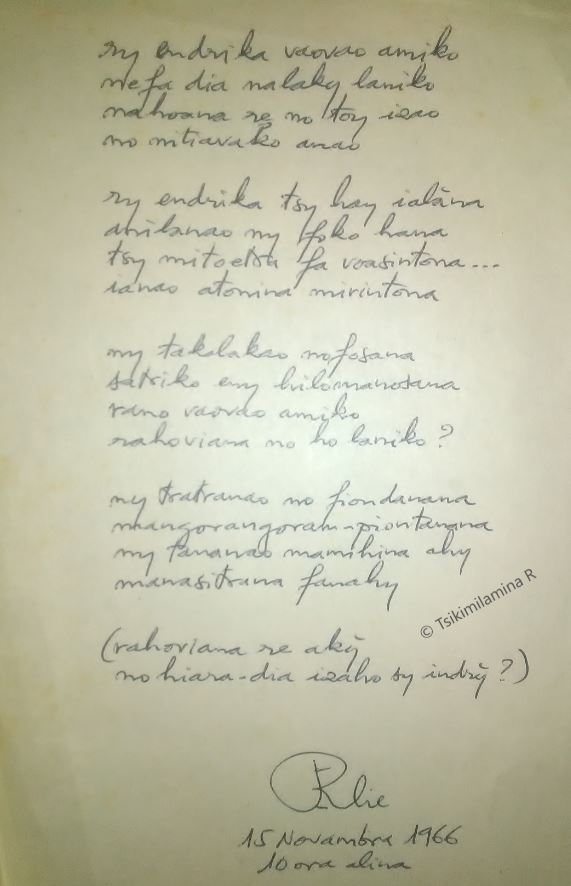 ry endrika vaovao amiko
nefa dia nalaky laniko
nahoana re no toy izao
no nitiavako anao
ry endrika tsy hay ialàna
anilanao ny foko hana
tsy mitoetra fa voasintona...
ianao atonina mirintona
ny takolakao nofosana
satriko eny hilomanosana
rano vaovao amiko
rahoviana no ho laniko ?
ny tratranao no fiondanana
mangorangoram-piontanana
ny tananao mamihina ahy
manasitrana fanahy
(rahoviana re akỳ
no hiara-dia izaho sy indrỳ ?)
© Tsikimilamina R
15 Novambra 1966
10 ora alina